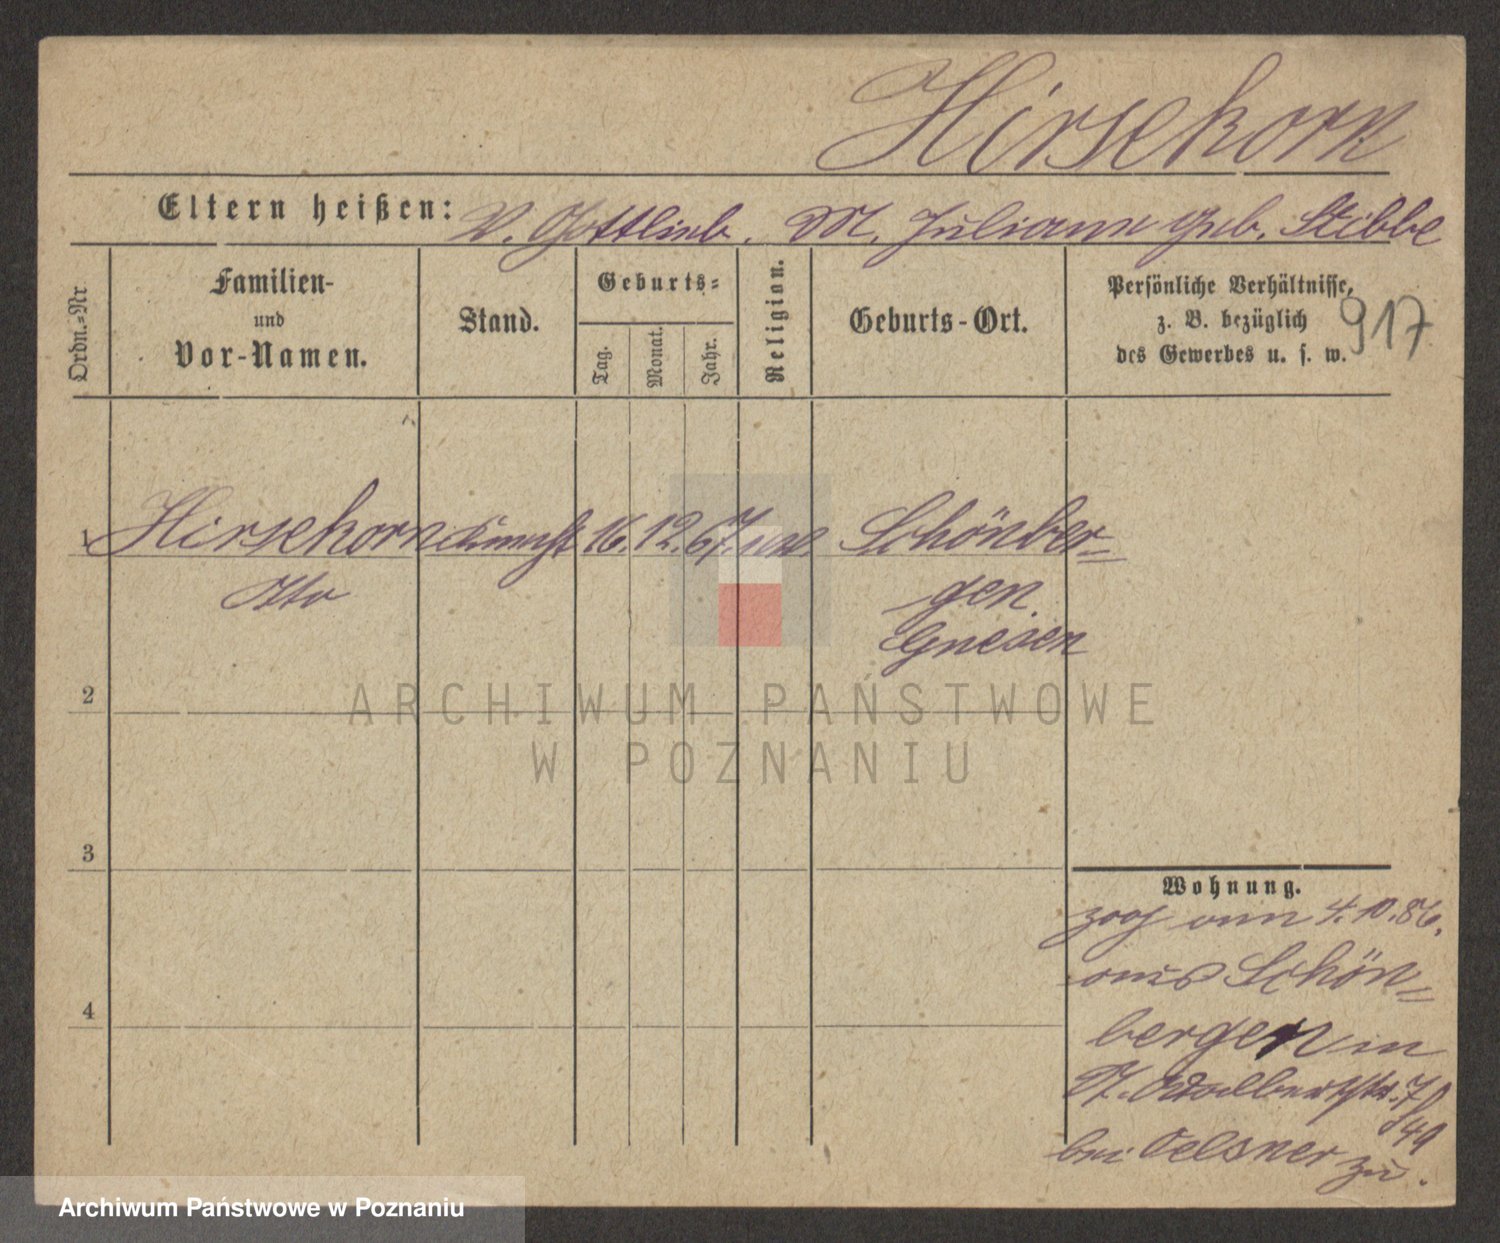 Hirsekorn
Eltern heißen: V. Gottlieb. M. Juliane geb. Stibbe
Ordn.-Nr
Familien-
und
Vor-Namen.
Stand.
Geburts-
Tag.
Monat.
Jahr.
Religion.
Geburts-Ort.
Persönliche Verhältnisse,
z. B. bezüglich
des Gewerbes u. s. w.
917
1 Hirsekorn 16. 12. 67. Schönber=
Otto gen.
Gnesen
2
3
4
Wohnung.
zog am 4.10.86.
aus Schön=
bergen in
St. Adalbertstr. 7/
49
bei Oelsner zu.
ARCHIWUM PAŃSTWOWE
W POZNANIU
Archiwum Państwowe w Poznaniu